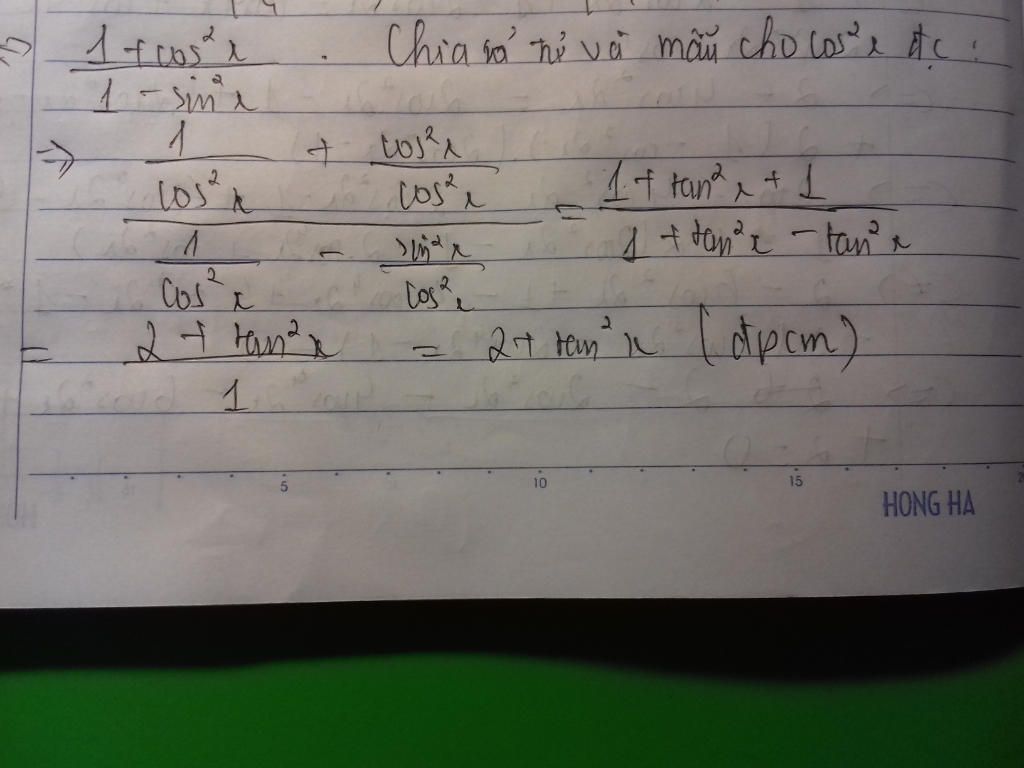 => 1 + cos²x / 1 - sin²x . Chia cả tử và mẫu cho cos²x đc :
=> 1/cos²x + cos²x/cos²x / 1/cos²x - sin²x/cos²x = 1 + tan²x + 1 / 1 + tan²x - tan²x
= 2 + tan²x / 1 = 2 + tan²x (đpcm)
5 10 15
HONG HA